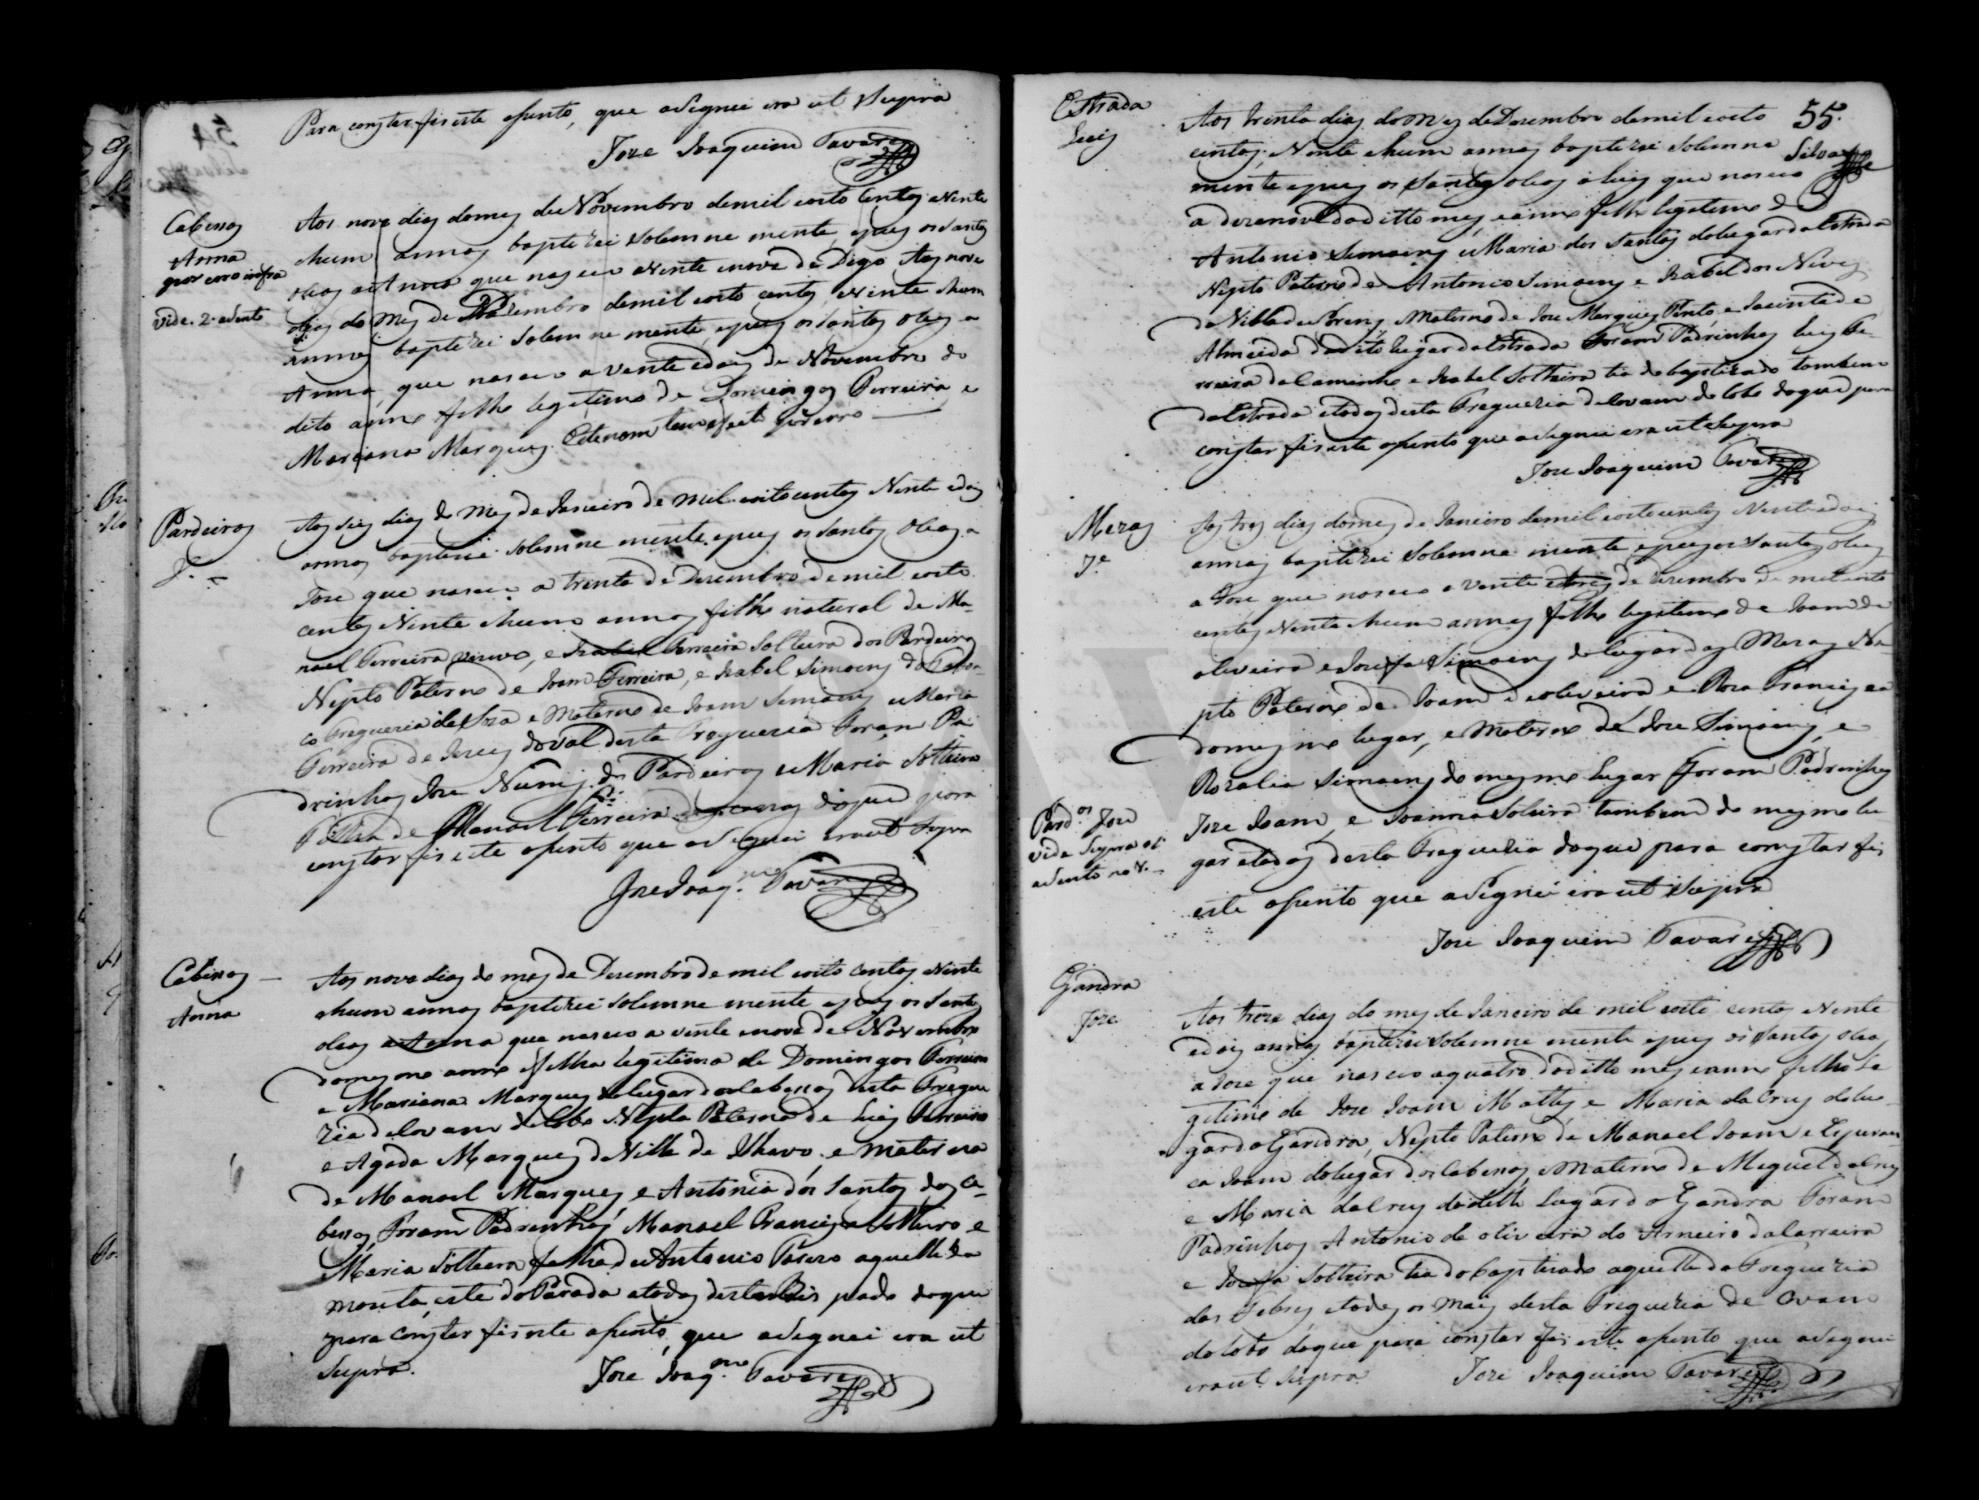 Para constar fis este aSento, que aSignei era ut Supra
Joze Joaquim Tavares
Cabesas
Anna
por erro infra
vide. 2.º aSento
Aos nove dias do mes de Novembro de mil oito Centos e Vinte
e hum annos baptizei Solemne mente, e pus os Santos
Oleos a Anna que nasceo a vinte e nove de Digo Aos nove
dias do Mes de Dezembro de mil oito centos e Vinte e hum
annos baptizei Solemne mente, e pus os Santos Oleos a
Anna, que nasceo a vinte e dois de Novembro do
dito anno filha legitima de Domingos Ferreira, e
Mariana Marques. Este nom teve efeito por erro
Pardeiros
J.e
Aos Seis dias do Mes de Janeiro de mil oito centos Vinte e dois
annos baptizei Solemne mente e pus os Santos Oleos a
Joze que nasceo a trinta de Dezembro de mil oito
centos Vinte e hum annos filho natural de Ma-
noel Ferreira viuvo, e Izabel Ferreira Solteira dos Pardeiros
Nepto Paterno de Joam Ferreira, e Izabel Simoens do
co Freguezia de Soza e Materno de Joam Simoens e Maria
Ferreira de Jesus do Val desta Freguezia Foram Pa
drinhos Joze Nunes dos Pardeiros e Maria Solteira
Filha de Manoel Ferreira doque para
constar fis este aSento que aSignei era ut Supra
Joze Joaq.m Tavares
Cabesas
Anna
Aos nove dias do mes de Dezembro de mil oito Centos e Vinte
e hum annos baptizei Solemne mente e pus os Santos
Oleos a Anna que nasceo a vinte e nove de Novembro
do mesmo anno filha legitima de Domingos Ferreira
e Mariana Marques do lugar dos Cabesos desta Fregue
zia de Covam do Lobo Nepta Paterna de Luis Ferreira
e Agada Marques da Villa de Ilhavo e materna
de Manoel Marques e Antonia dos Santos dos Ca-
besos, Foram Padrinhos Manoel Francisco Solteiro e
Maria Solteira filha de Antonio aquelle da
este do Parada e todos deste Bispado doque
para constar fis este aSento, que aSignei era ut
Supra.
Joze Joaq.m Tavares
55.
Silva
Estrada
Luis
Aos trinta dias do Mes de Dezembro de mil oito
centos, Vinte e hum annos baptizei Solemne
mente e pus os Santos oleos a Luis que nasceo
a dezanove do ditto mes e anno filho legitimo de
Antonio Simoens e Maria dos Santos do lugar da Estrada
Nepto Paterno de Antonio Simoens e Izabel das Neves
da Villa de Materno de Joze Marques Pinto e Jacinta de
Almeida do dito lugar da Estrada Foram Padrinhos Luis Fe-
rreira do Caminho e Izabel Solteira tia do baptizado tambem
da Estrada e todos desta Freguezia de Covam do Lobo doque para
constar fis este aSento que aSignei era ut Supra
Joze Joaquim Tavares
Mezas
J.e
Aos tres dias do mes de Janeiro de mil oito centos Vinte e dois
annos baptizei Solemne mente e pus os Santos oleos
a Joze que nasceo a vinte e tres de Dezembro de mil oito
centos Vinte e hum annos filho legitimo de Joam de
oliveira e Josefa Simoens do lugar das Mezas Ne-
pto Paterno de Joam de oliveira e Roza Francisca
do mesmo lugar, e Materno de Joze Simoens, e
Rozalia Simoens do mesmo lugar Foram Padrinhos
Joze Joam, e Joanna Solteira tambem do mesmo lu
gar e todos desta Freguezia doque para constar fis
este aSento que aSignei era ut Supra
Joze Joaquim Tavares
Pard.os Joze
vide Supra
aSento
Gandra
Joze
Aos treze dias do mes de Janeiro de mil oito centos Vinte
e dois annos baptizei Solemne mente e pus os Santos Oleos
a Joze que nasceo a quatro do ditto mes e anno filho le
gitimo de Joze Joam Mattos e Maria da Crus do lu-
gar da Gandra, Nepto Paterno de Manoel Joam e Esperan
ca Joam do lugar dos Cabesos, e Materno de Miguel da Crus
e Maria da Crus do ditto lugar da Gandra Foram
Padrinhos Antonio de oliveira do Arneiro da Carreira
e Josefa Solteira tia do baptizado aquelle da Freguezia
das Febres, e todos os mais desta Freguezia de Covam
do Lobo doque para constar fis este aSento que aSignei
era ut Supra
Joze Joaquim Tavares